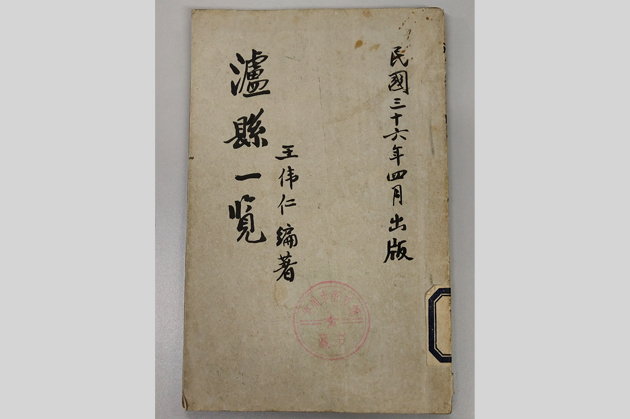 民國三十六年四月出版
王伟仁编著
瀘縣一覧